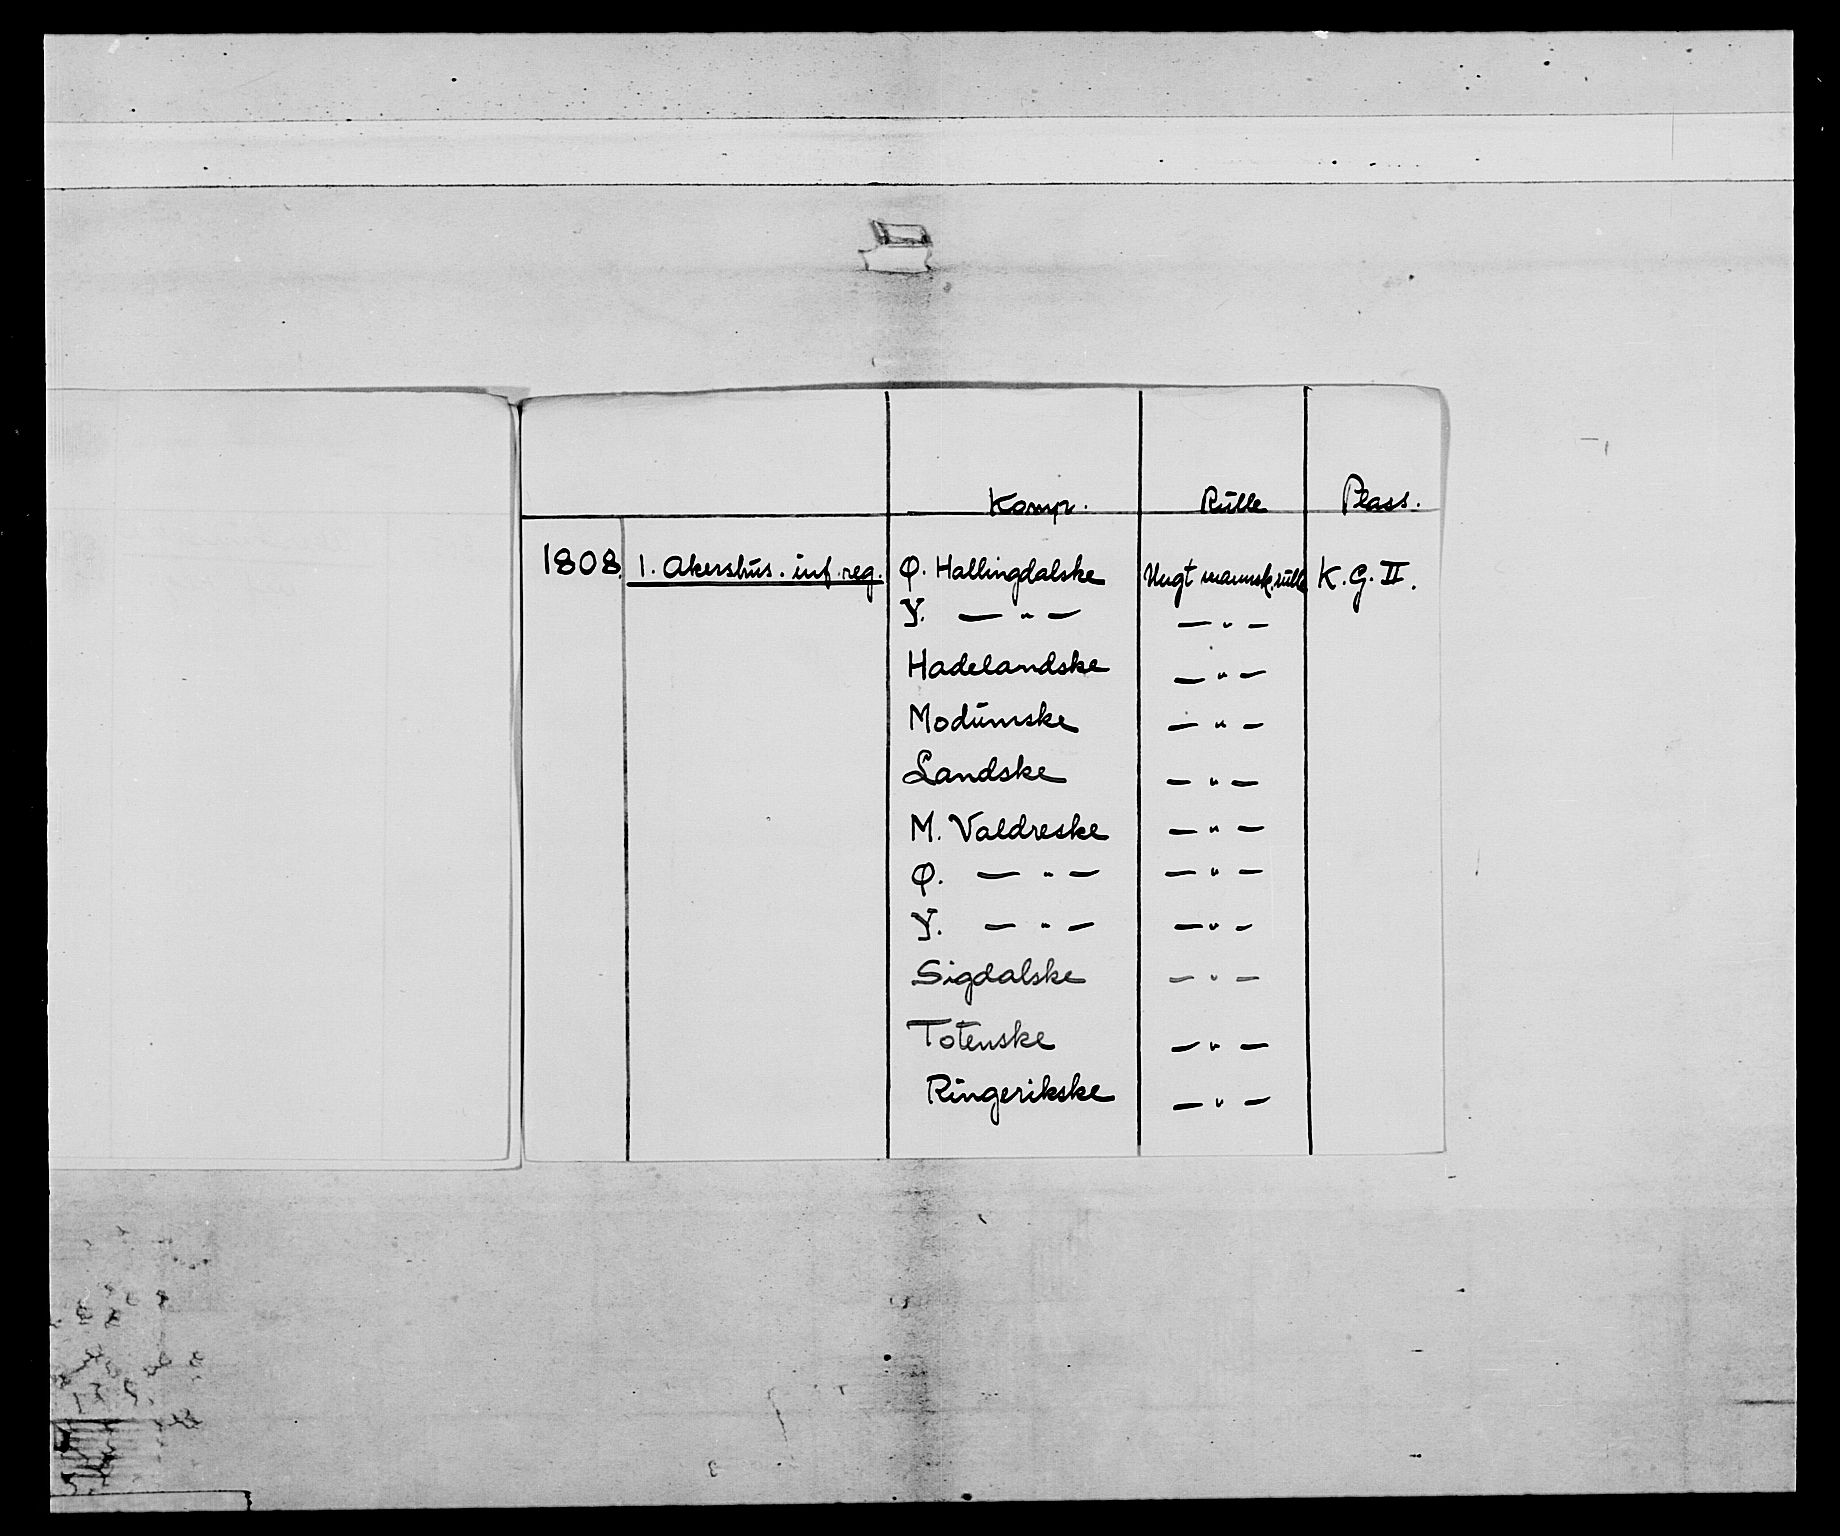 Komp. Rulle Plass.
1808. 1. Akershus. inf. reg. Ø. Hallingdalske Ungt mannsk. rulle K. G. II.
Y. — " — — " —
Hadelandske — " —
Modumske — " —
Landske — " —
M. Valdreske — " —
Ø. — " — — " —
Y. — " — — " —
Sigdalske — " —
Totenske — " —
Ringerikske — " —